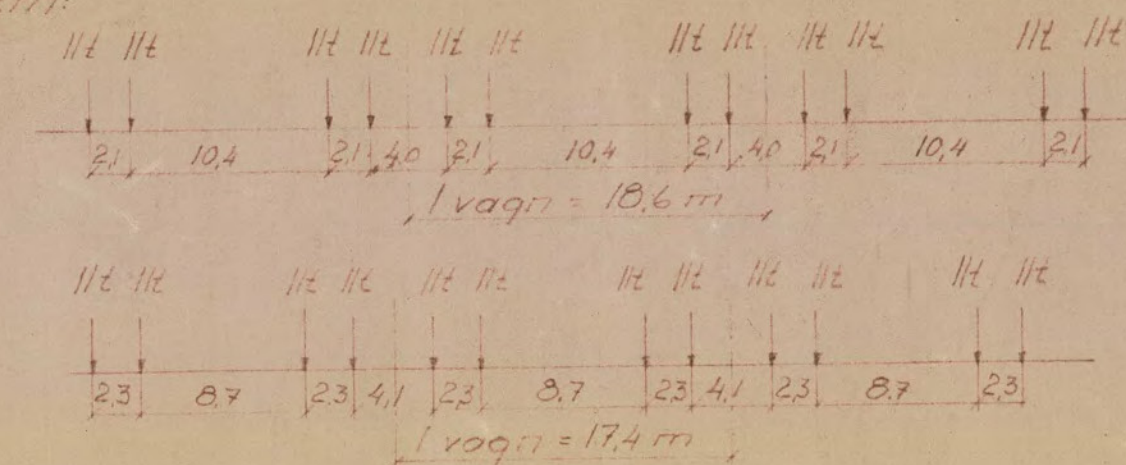 11t 11t 11t 11t 11t 11t 11t 11t 11t 11t 11t 11t
2,1 10,4 2,1 4,0 2,1 10,4 2,1 4,0 2,1 10,4 2,1
1 vagn = 18,6 m
11t 11t 11t 11t 11t 11t 11t 11t 11t 11t 11t 11t
2,3 8,7 2,3 4,1 2,3 8,7 2,3 4,1 2,3 8,7 2,3
1 vagn = 17,4 m